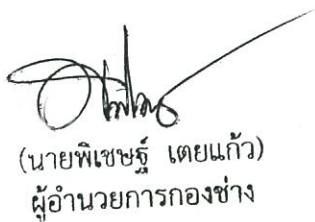 (นายพิเชษฐ์ เตยแก้ว)
ผู้อำนวยการกองช่าง